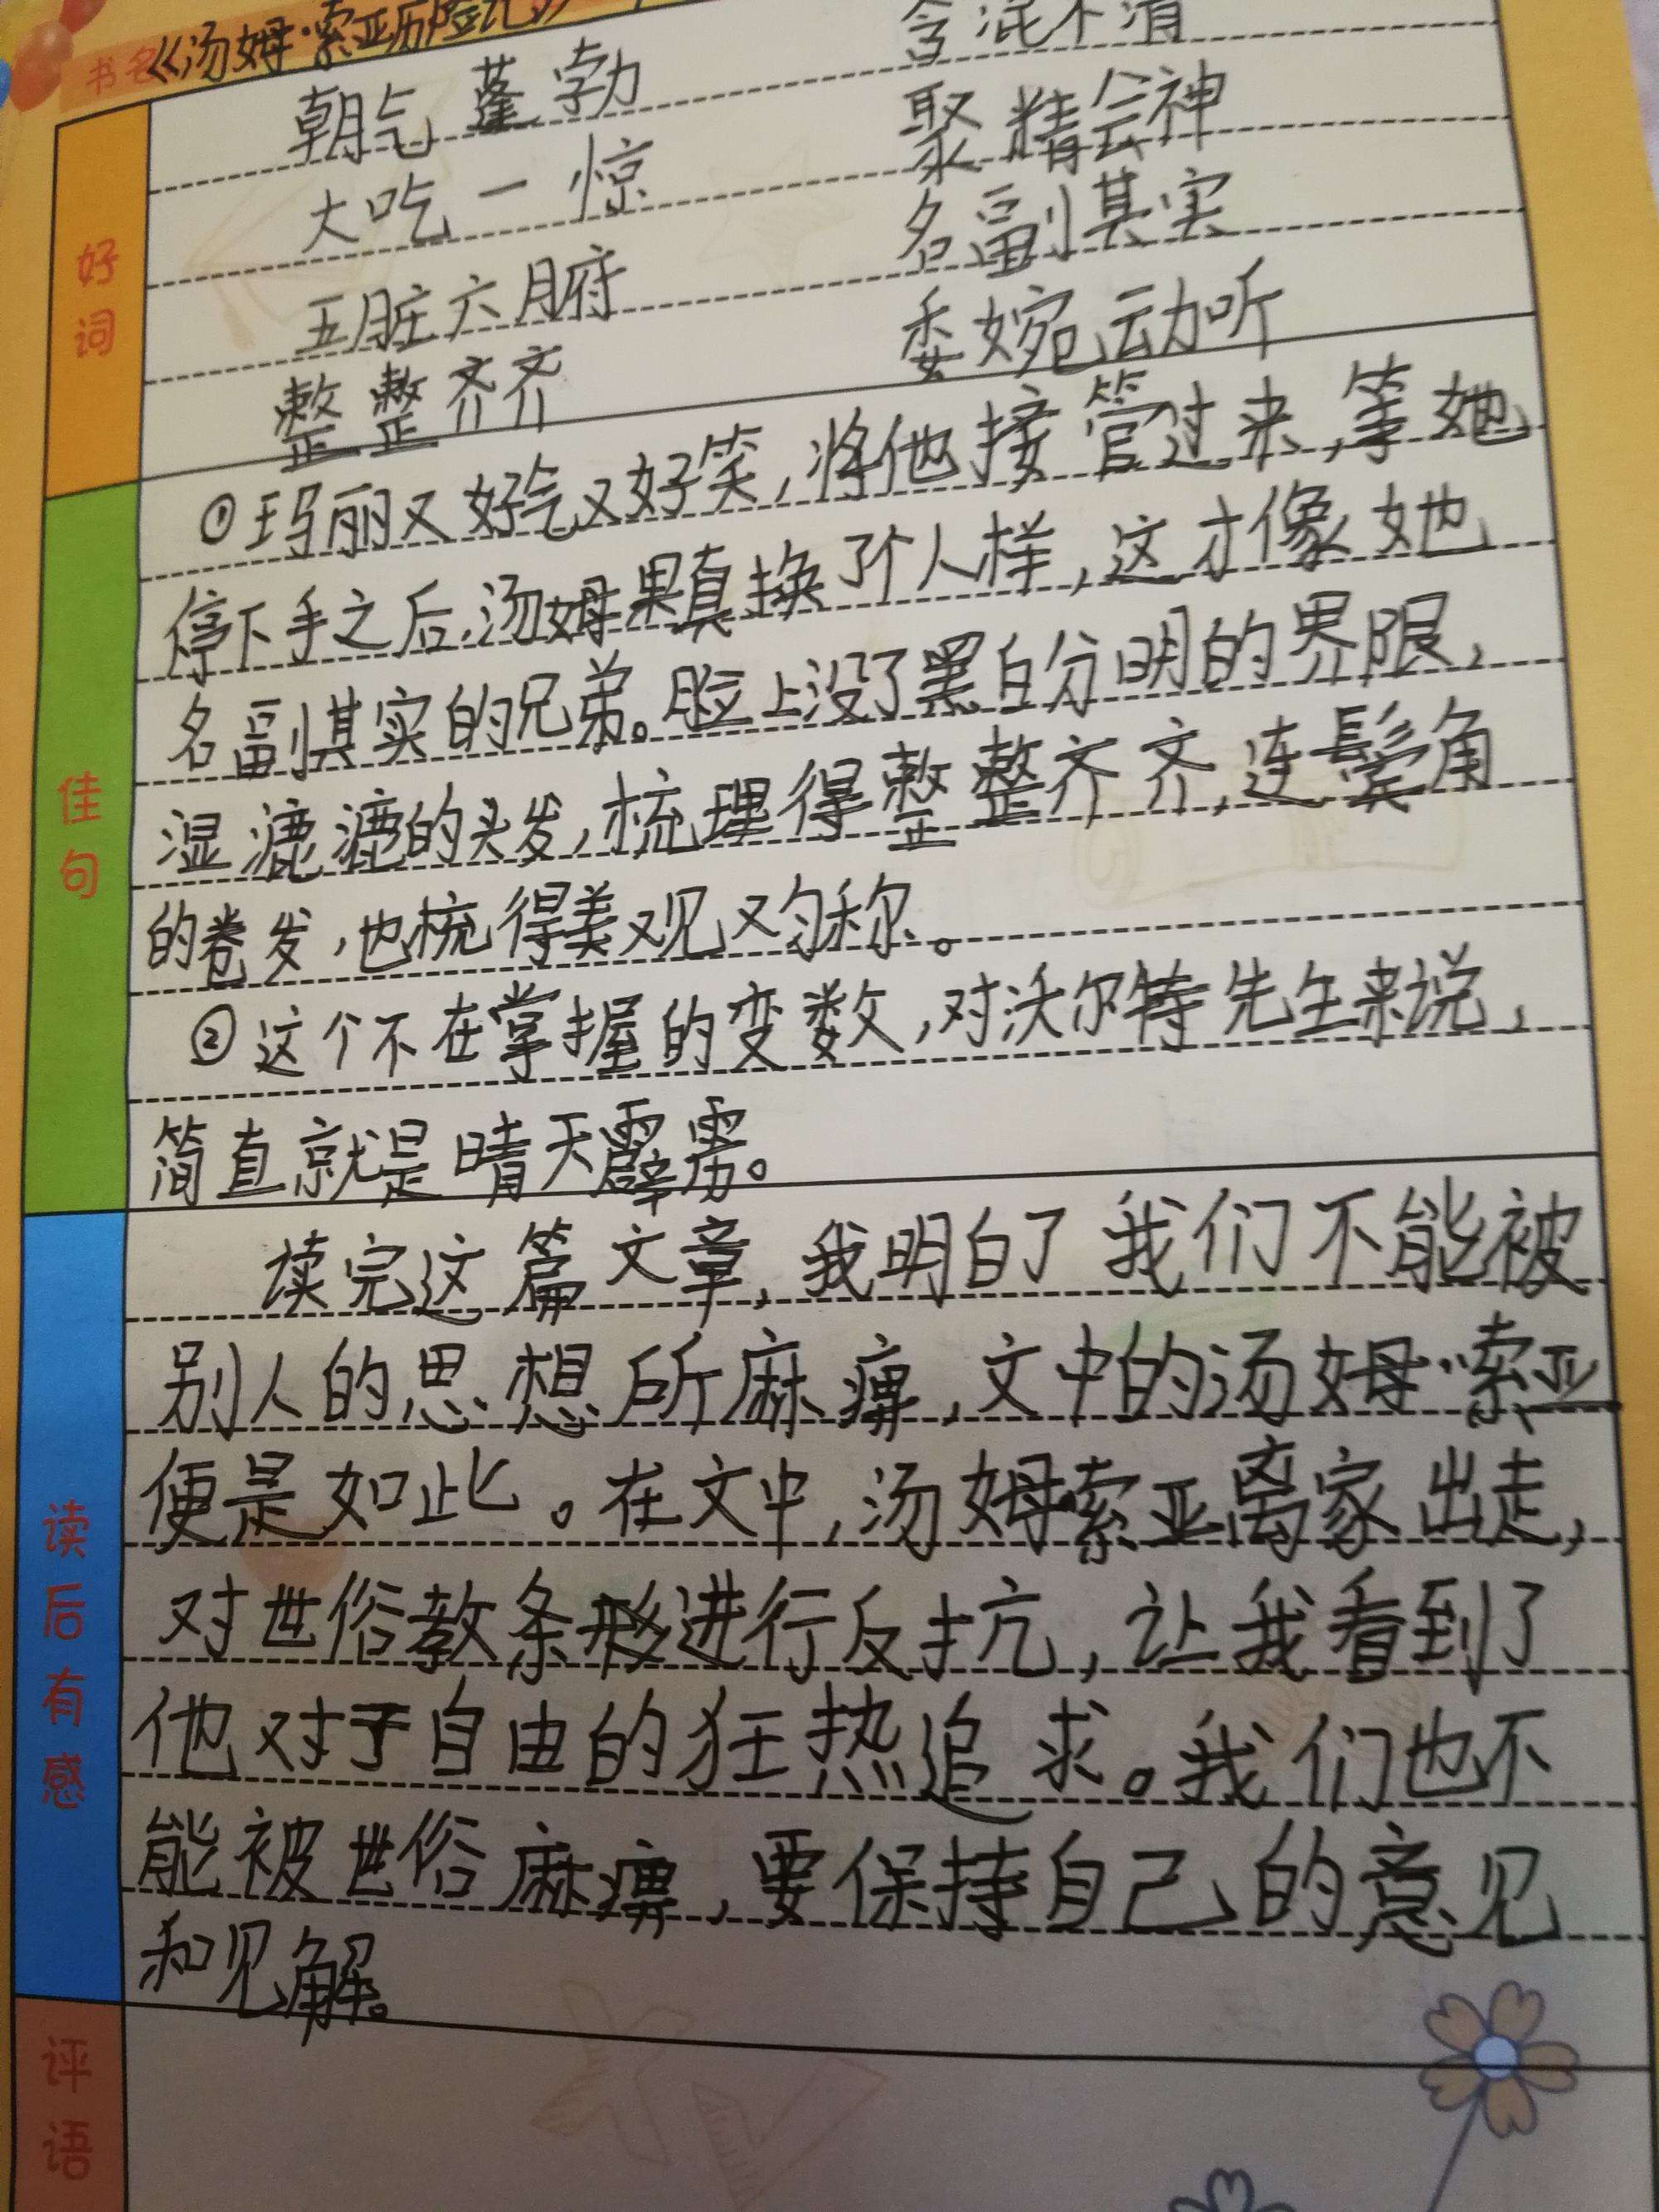 书名《汤姆·索亚历险记》
朝气蓬勃 含混不清
大吃一惊 聚精会神
五脏六腑 名副其实
整整齐齐 委婉动听
好词
①玛丽又好气又好笑,将他接管过来,等她
停下手之后,汤姆果真换了个人样,这才像她
名副其实的兄弟。脸上没了黑白分明的界限,
湿漉漉的头发,梳理得整整齐齐,连鬓角
的卷发,也梳得美观又匀称。
②这个不在掌握的变数,对沃尔特先生来说,
简直就是晴天霹雳。
佳句
读完这篇文章,我明白了我们不能被
别人的思想所麻痹,文中的汤姆·索亚
便是如此。在文中,汤姆·索亚离家出走,
对世俗教条形进行反抗,让我看到了
他对于自由的狂热追求。我们也不
能被世俗麻痹,要保持自己的意见
和见解。
读后有感
评语